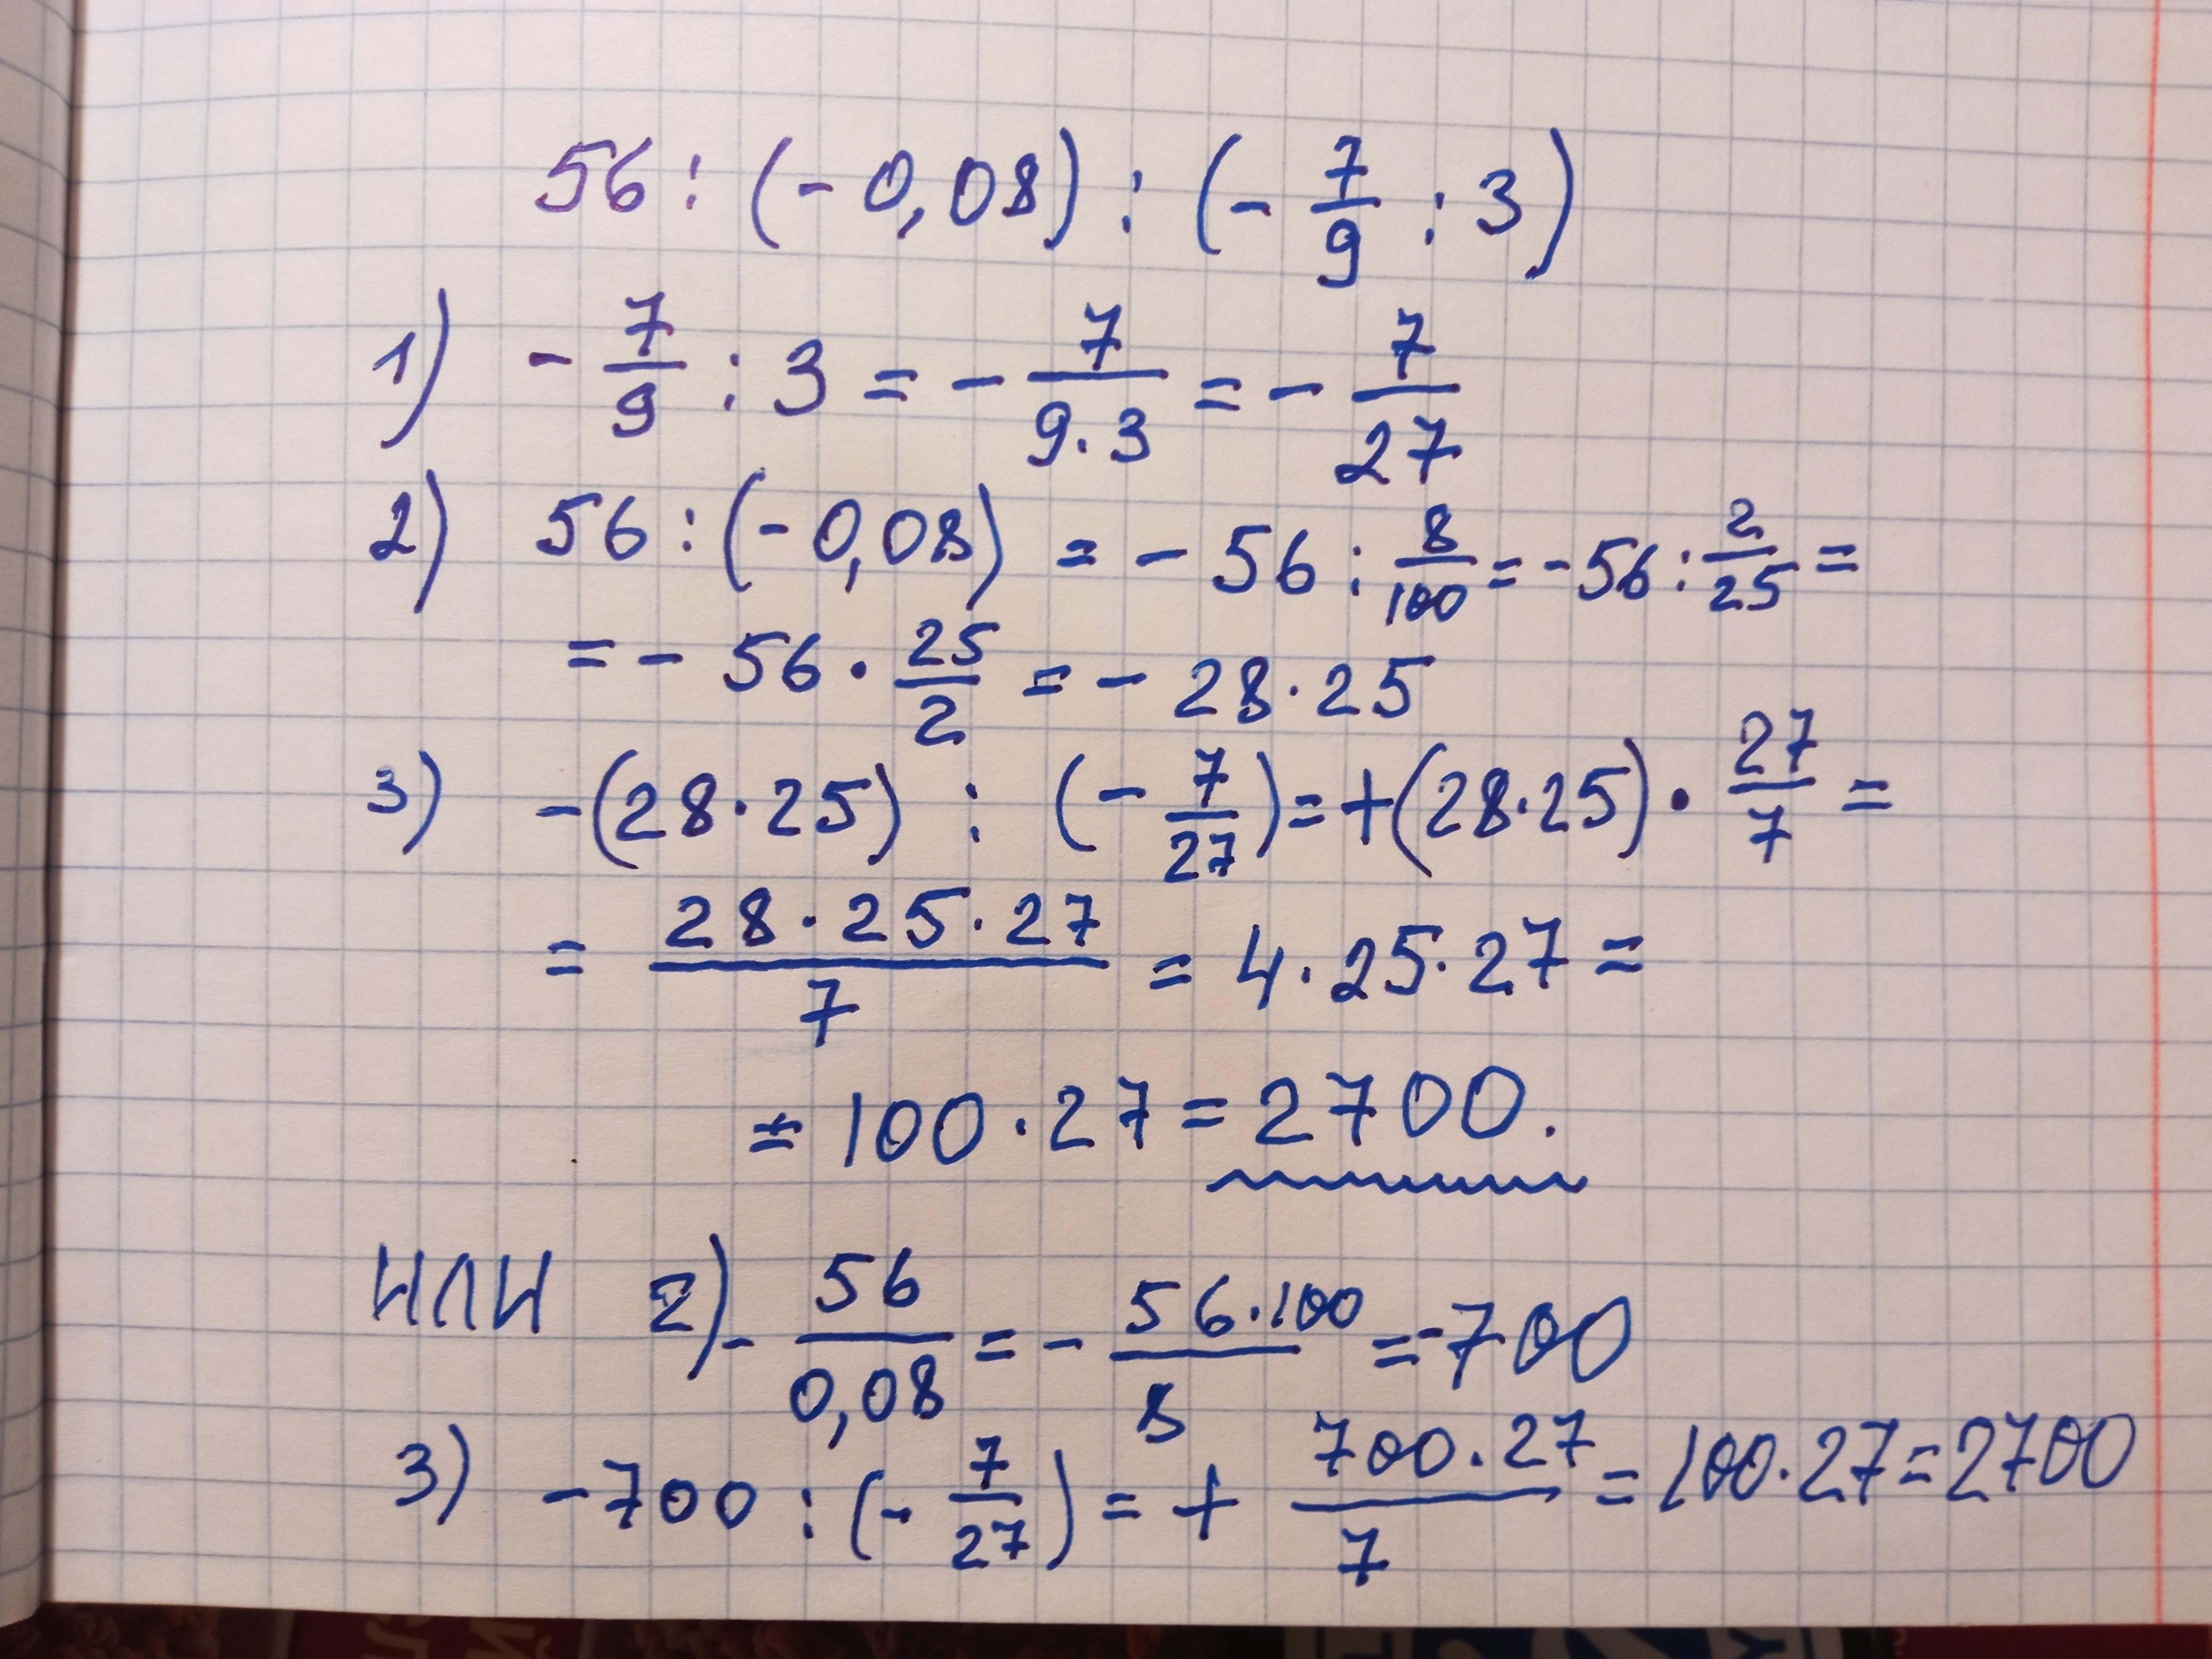 56 : (- 0,08) : (- 7/9 : 3)
1) - 7/9 : 3 = - 7/(9·3) = - 7/27
2) 56 : (- 0,08) = - 56 : 8/100 = - 56 : 2/25 =
= - 56 · 25/2 = - 28·25
3) -(28·25) : (- 7/27) = +(28·25) · 27/7 =
= (28·25·27)/7 = 4·25·27 =
= 100·27 = 2700.
ИЛИ 2) - 56/0,08 = - (56·100)/8 = -700
3) -700 : (- 7/27) = + (700·27)/7 = 100·27 = 2700